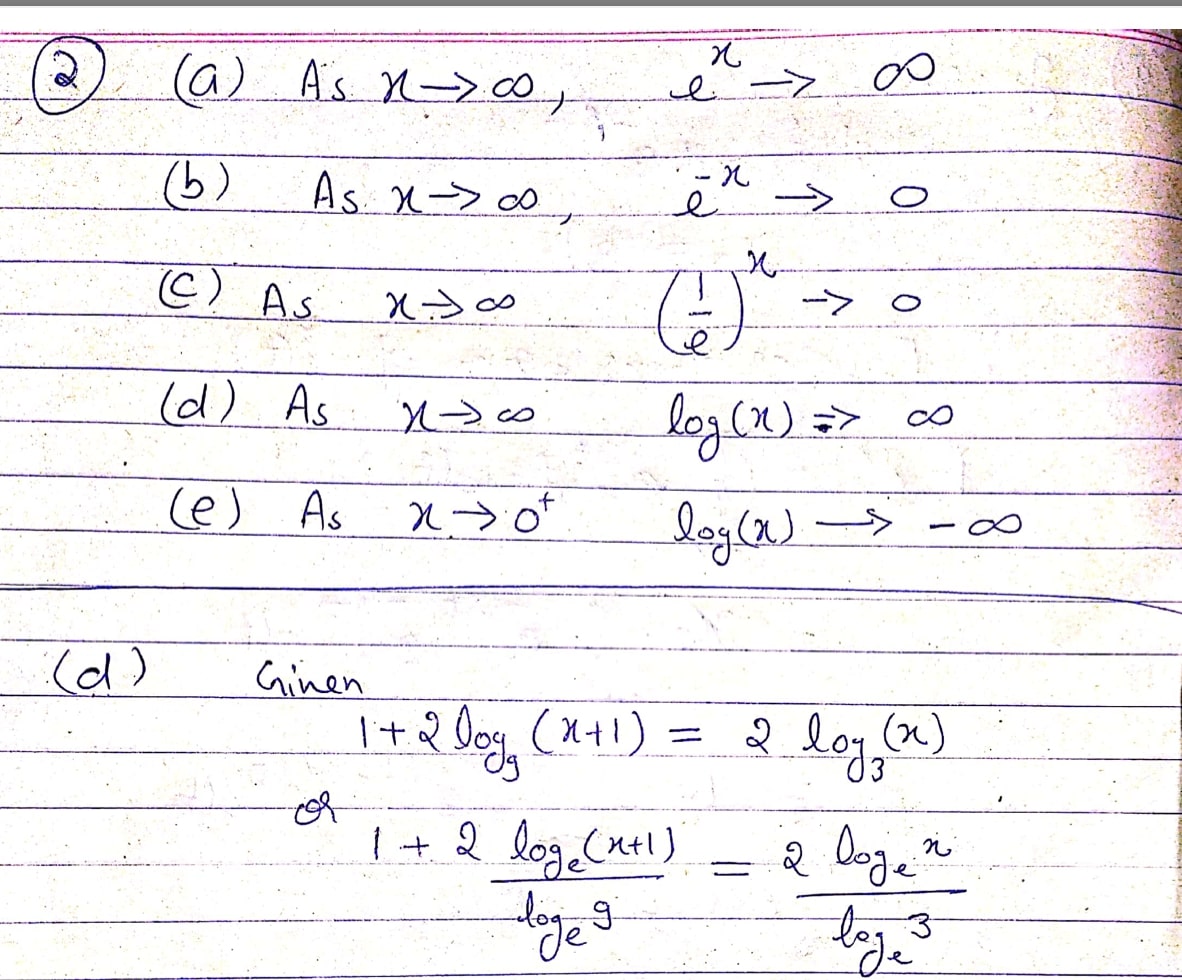 ② (a) As x → ∞, e^x → ∞
(b) As x → ∞, e^-x → 0
(c) As x → ∞ (1/e)^x → 0
(d) As x → ∞ log(x) => ∞
(e) As x → 0^+ log(x) → -∞
(d) Given
1 + 2 log_9 (x+1) = 2 log_3 (x)
or
1 + 2 log_e (x+1) / log_e 9 = 2 log_e x / log_e 3